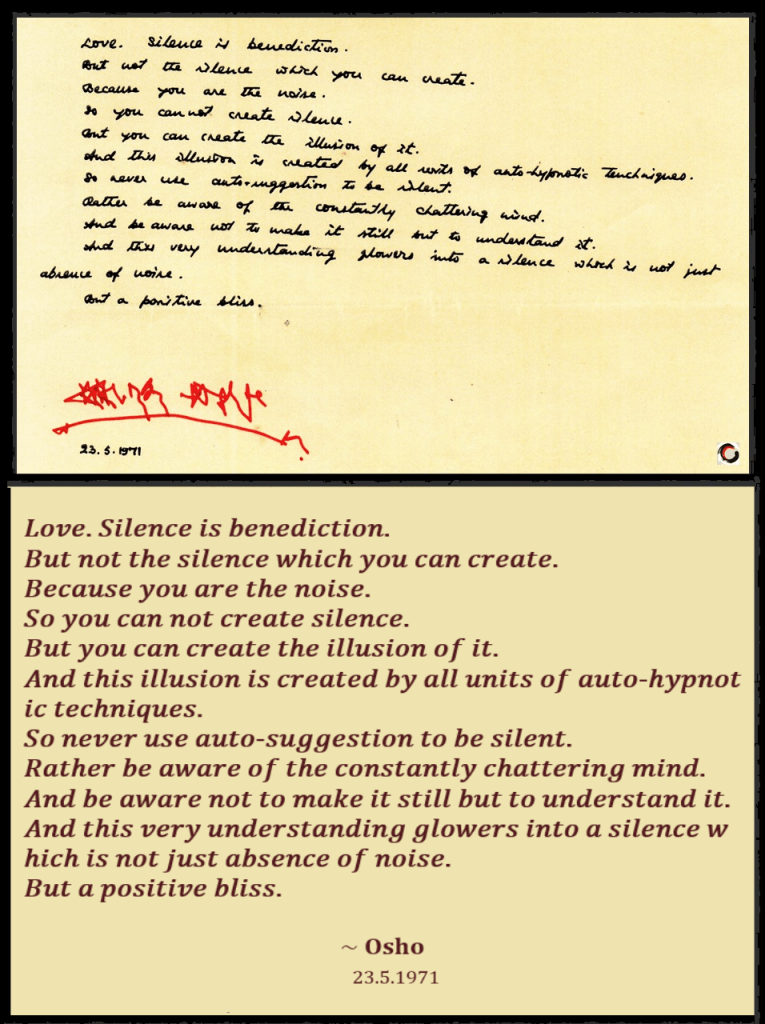 Love. Silence is benediction.
But not the silence which you can create.
Because you are the noise.
So you can not create silence.
But you can create the illusion of it.
And this illusion is created by all units of auto-hypnotic Tenchniques.
So never use auto-suggestion to be silent.
Rather be aware of the constantly chattering mind.
And be aware not to make it still but to understand it.
And this very understanding glowers into a silence which is not just
absence of noise.
But a positive bliss.
23.5.1971
Love. Silence is benediction.
But not the silence which you can create.
Because you are the noise.
So you can not create silence.
But you can create the illusion of it.
And this illusion is created by all units of auto-hypnot
ic techniques.
So never use auto-suggestion to be silent.
Rather be aware of the constantly chattering mind.
And be aware not to make it still but to understand it.
And this very understanding glowers into a silence w
hich is not just absence of noise.
But a positive bliss.
~ Osho
23.5.1971